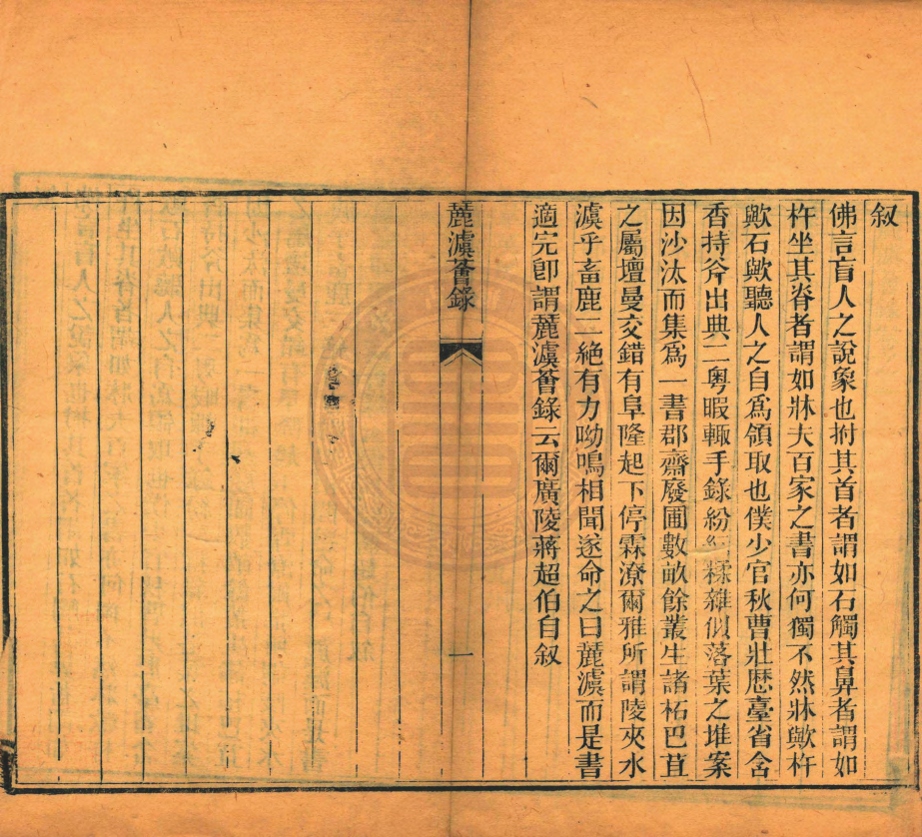 叙
佛言盲人之說象也拊其首者謂如石觸其鼻者謂如
杵坐其脊者謂如牀夫百家之書亦何獨不然牀歟杵
歟石歟聽人之自爲領取也僕少官秋曹壯歷臺省含
香持斧出典二粤暇輙手錄紛紜糅雜似落葉之堆案
因沙汰而集爲一書郡齋廢圃數畝餘叢生諸柘巴苴
之屬壇曼交錯有阜隆起下停霖潦爾雅所謂陵夾水
澞乎畜鹿二絶有力呦鳴相聞遂命之曰麓澞而是書
適完卽謂麓澞薈錄云爾廣陵蔣超伯自叙
麓澞薈錄
一